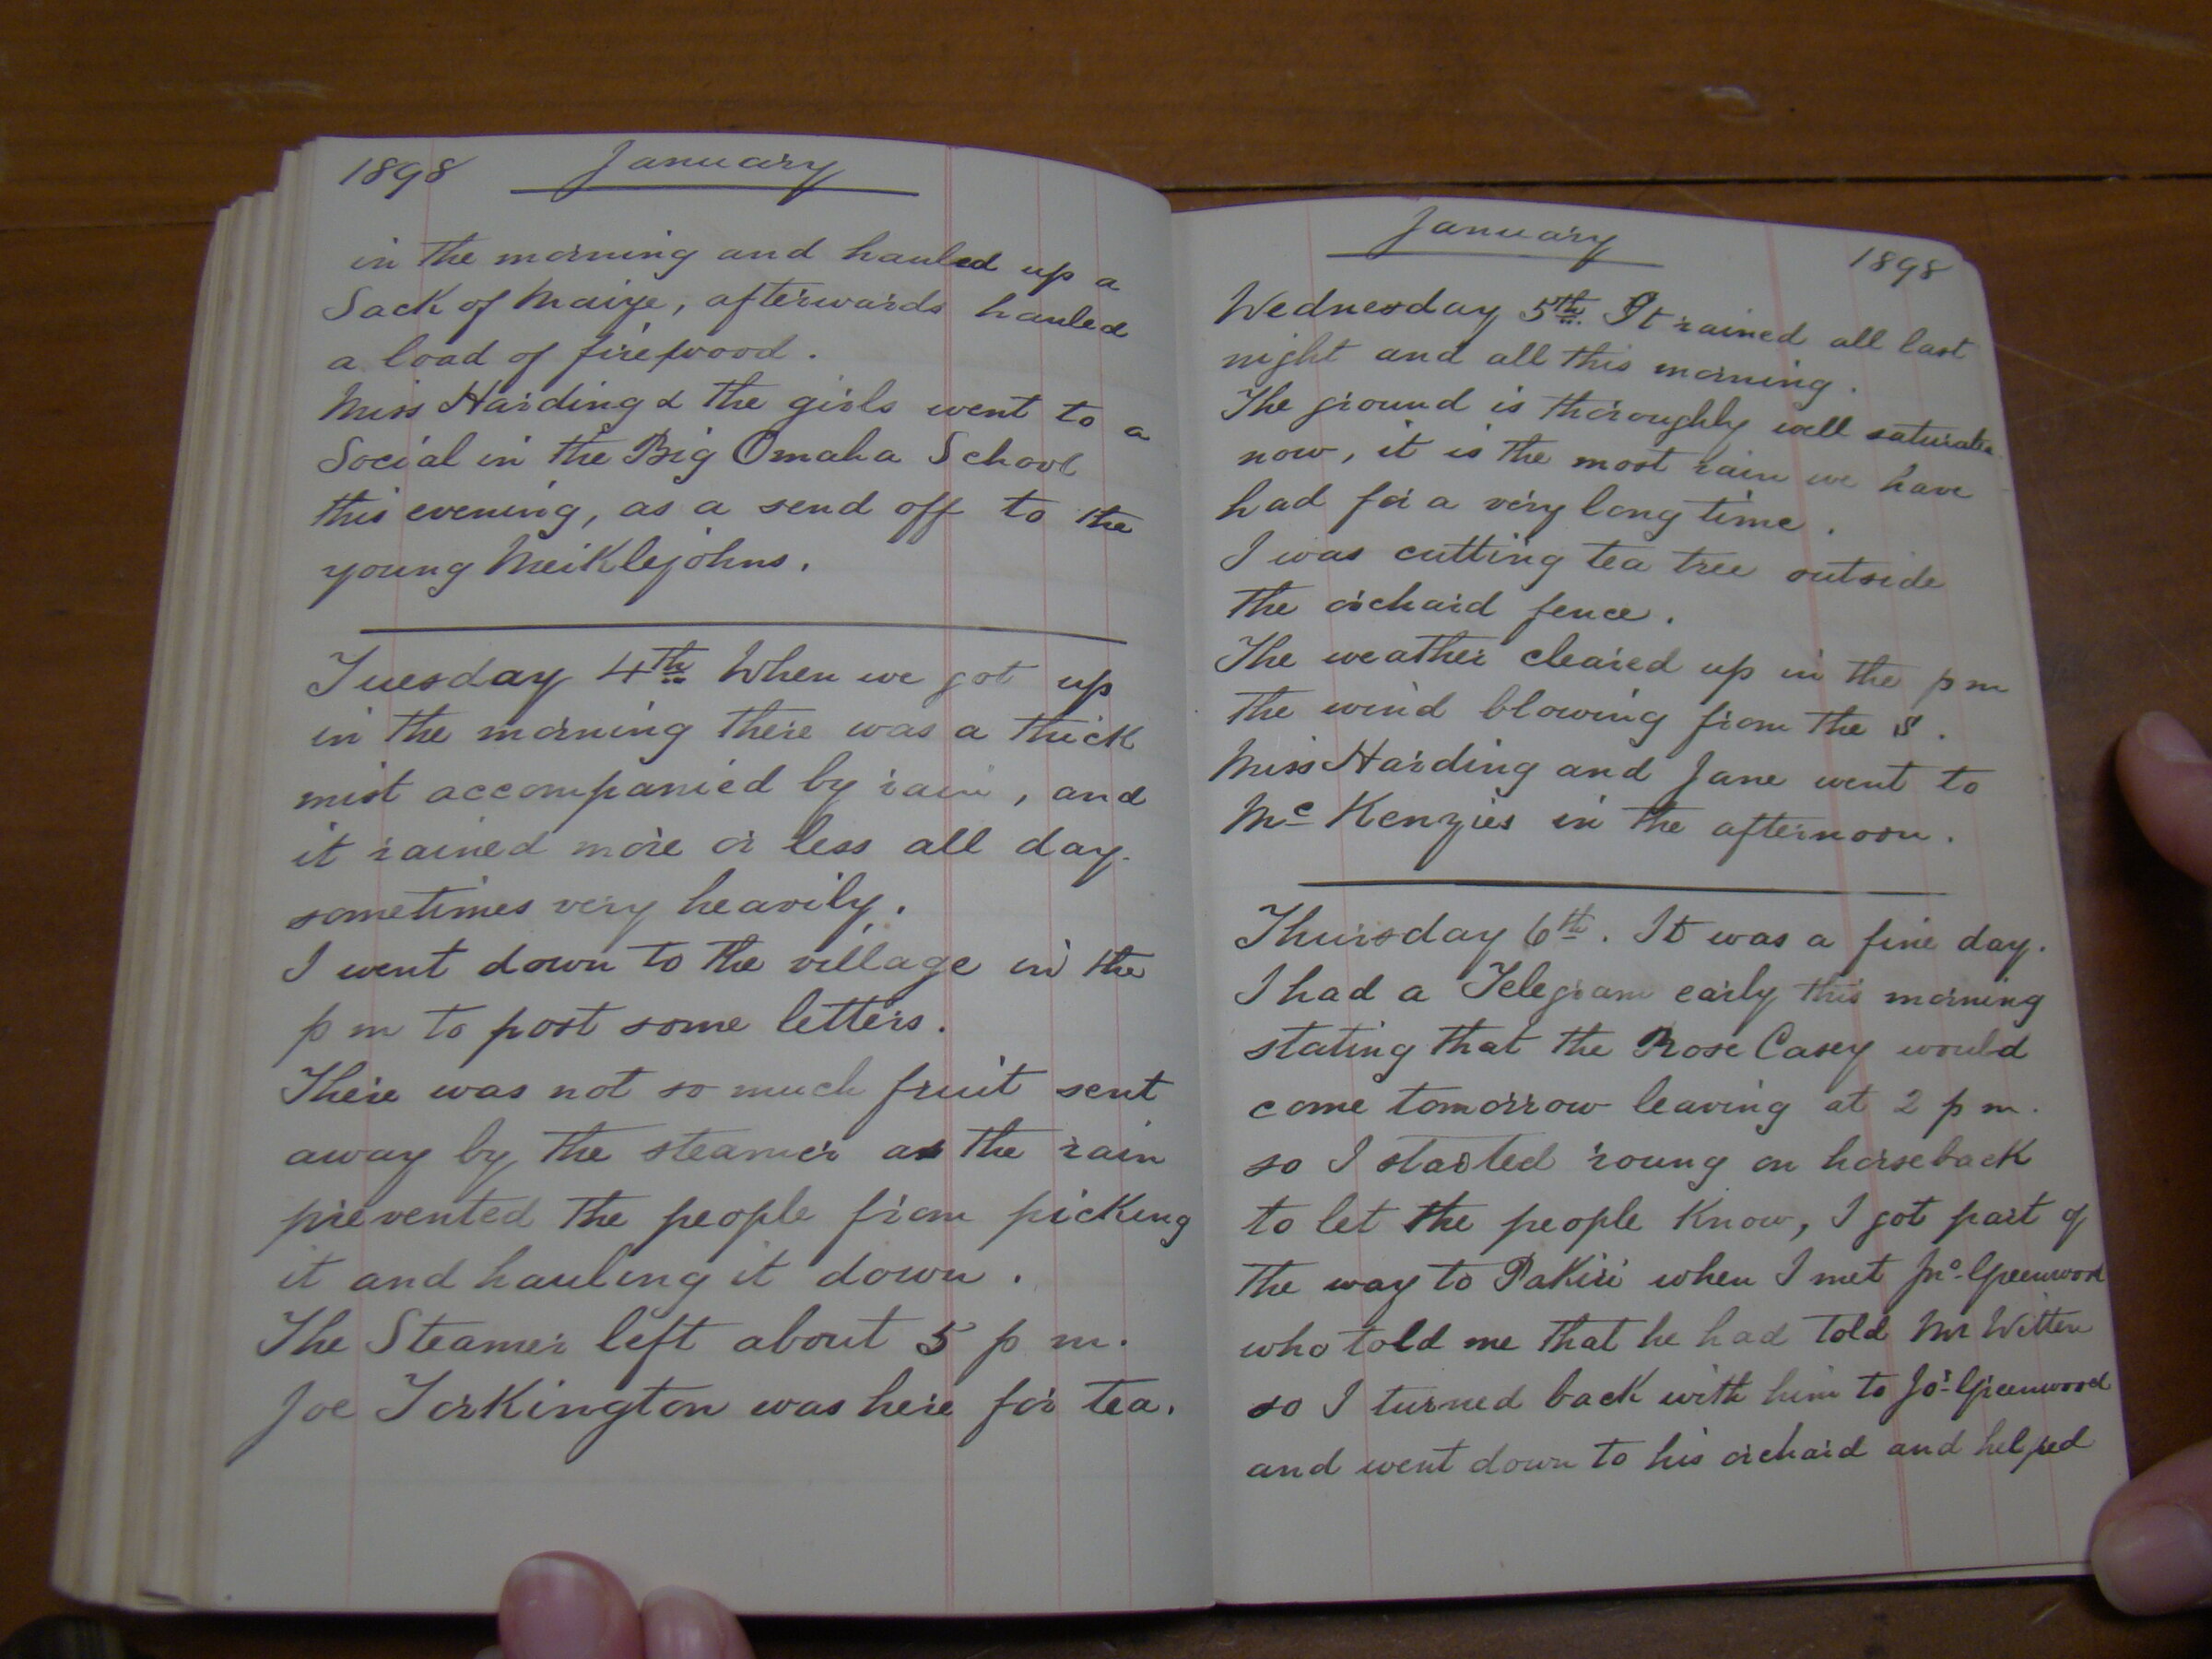 1898 January
in the morning and hauled up a
Sack of Maize, afterwards hauled
a load of firewood.
Miss Harding & the girls went to a
Social in the Big Omaha School
this evening, as a send off to the
young Meiklejohns.
Tuesday 4th When we got up
in the morning there was a thick
mist accompanied by rain, and
it rained more or less all day.
sometimes very heavily.
I went down to the village in the
p m to post some letters.
There was not so much fruit sent
away by the steamer as the rain
prevented the people from picking
it and hauling it down.
The Steamer left about 5 p m.
Joe Torkington was here for tea.
January 1898
Wednesday 5th. It rained all last
night and all this morning.
The ground is thoroughly well saturated
now, it is the most rain we have
had for a very long time.
I was cutting tea tree outside
the orchard fence.
The weather cleared up in the p m
the wind blowing from the S.
Miss Harding and Jane went to
McKenzies in the afternoon.
Thursday 6th. It was a fine day.
I had a Telegram early this morning
stating that the Rose Casey would
come tomorrow leaving at 2 p m.
so I started roung on horseback
to let the people know, I got part of
the way to Pakiri when I met Jno. Greenwood
who told me that he had told Mr Witten
so I turned back with him to Jos. Greenwood
and went down to his orchard and helped